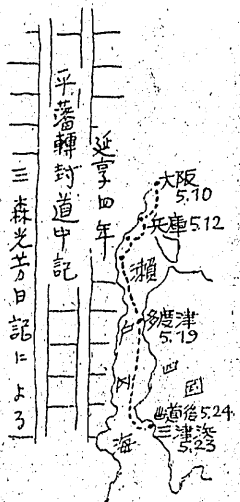 延享四年
平藩轉封道中記
三森光芳日記による
大阪
5.10
兵庫5.12
瀨戸内海
多度津
5.19
四国
道後5.24.
三津浜
5.23